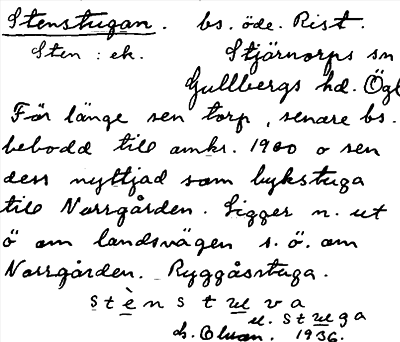 Stenstugan. bs. öde. Rist.
Sten : ek. Stjärnorps sn
Gullbergs hd. Ögl
För länge sen torp, senare bs.
bebodd till omkr. 1900 o sen
dess nyttjad som bykstuga
till Norrgården. Ligger n. ut
ö om landsvägen s. ö. om
Norrgården. Ryggåsstuga.
stènstuva
el. stuga
1936.